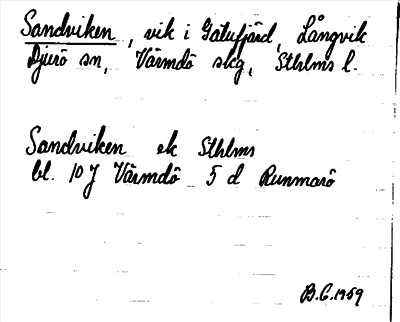 Sandviken, vik i Gatufjärd, Långvik
Djurö sn, Värmdö skg, Sthlms l.
Sandviken ek Sthlms
bl. 10 J Värmdö 5 d Runmarö
B.C. 1959